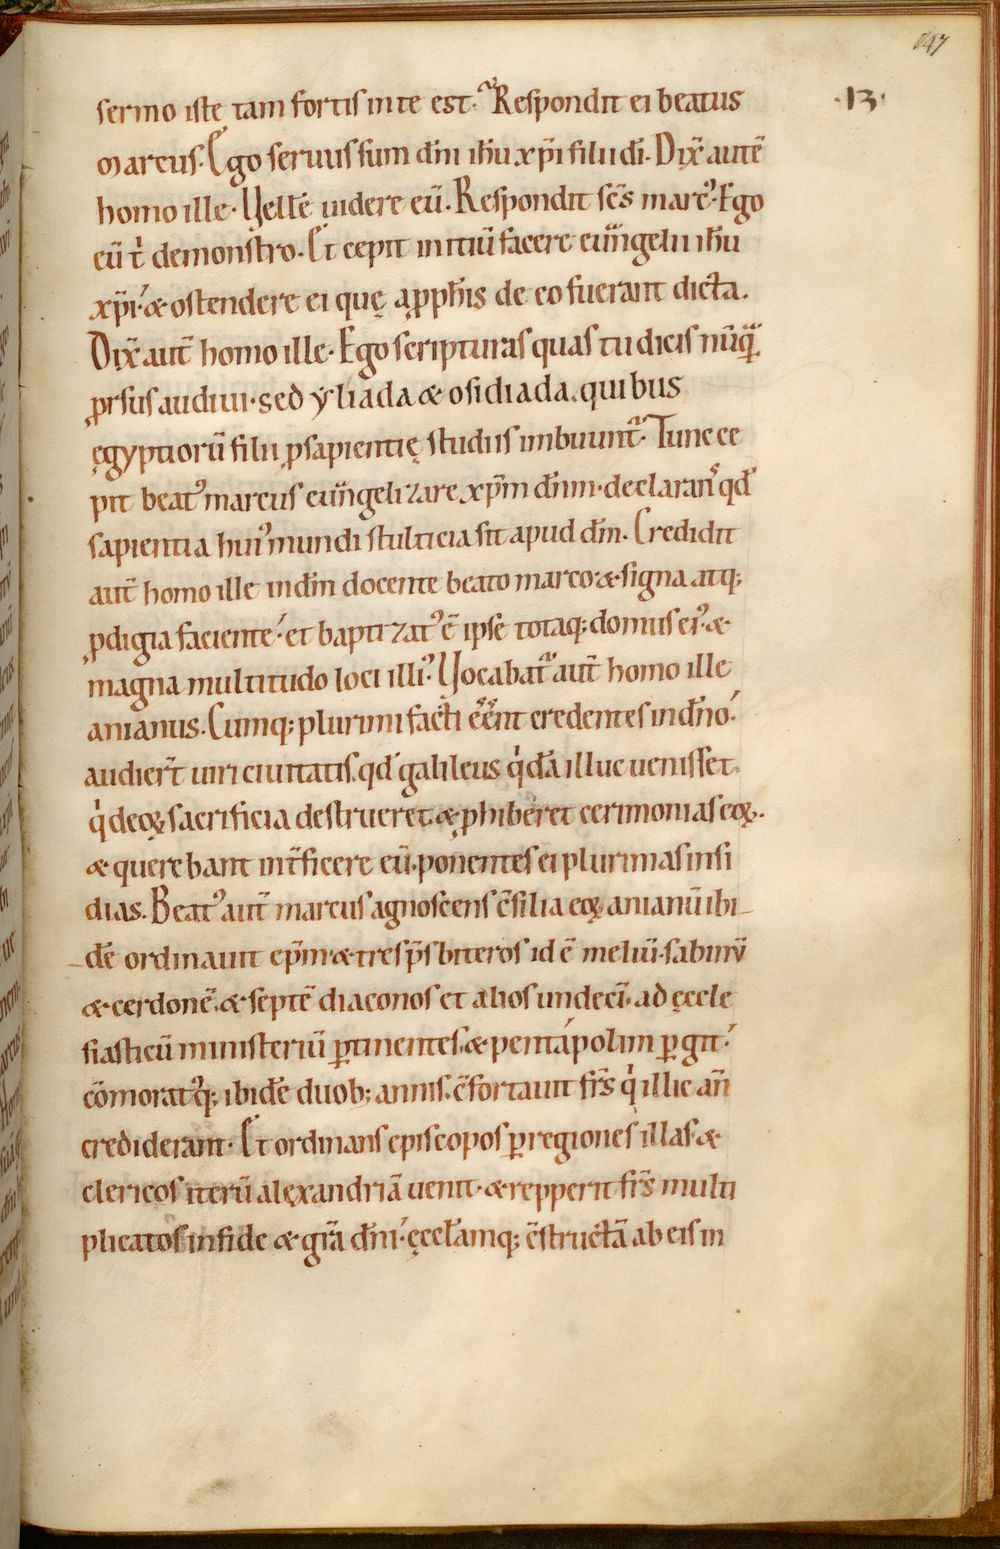 147
·13·
sermo iste tam fortis in te est. Respondit ei beatus
marcus. Ego seruus sum dn̄i ih̄u xp̄i filii dī. Dix̄ autē
homo ille. Vellē uidere eū. Respondit sc̄s marcꝰ. Ego
eū t̍ demonstro. Et cepit initiū facere euu̅gelii ih̄u
xp̄i. & ostendere ei quę a ꝓph̄is de eo fuerant dicta.
Dix̄ aut̄ homo ille. Ego scripturas quas tu dicis nūqᷓ
ꝓrsus audiui. sed ẏliada & osidiada. quibus
ęgyptiorū filii ꝓ sapientię studiis imbuunt᷑. Tunc ce
pit beatꝰ marcus euu̅gelizare xp̄m dn̄m. declaranꝰ qd̄
sapientia huiꝰ mundi stulticia sit apud dm̄. Credidit
aut̄ homo ille in dm̄ docente beato marco & signa atq;
ꝓdigia faciente. et baptizatꝰ ē ipse totaq; domus eiꝰ &
magna multitudo loci illiꝰ. Vocabat᷑ aut̄ homo ille
anianus. Cumq; plurimi facti eēnt credentes in dn̄o.
audier̄t uiri ciuitatis. qd̄ galileus qͥdā illuc uenisset.
qͥ deoꝝ sacrificia destrueret. & ꝓhiberet cerimonias eoꝝ.
& querebant int̄ficere eū. ponentes ei plurimas insi
dias. Beatꝰ aut̄ marcus agnoscens c̄silia eoꝝ anianū ibi
dē ordinauit ep̄m & tres p̄sbiteros id ē meliū. sabinū
& cerdonē. & septē diaconos et alios undecī. ad ęccle
siasticū ministeriū ꝑtinentes. & pentápolim ꝑgit.
cōmoratꝰq; ibidē duob; annis. c̄fortauit fr̄s qͥ illic an̄
crediderant. Et ordinans episcopos ꝑ regiones illas &
clericos iterū alęxandriā uenit. & repperit fr̄s multi
plicatos in fide & gr̄a dn̄i. ęccl̄amq; c̄structā ab eis in